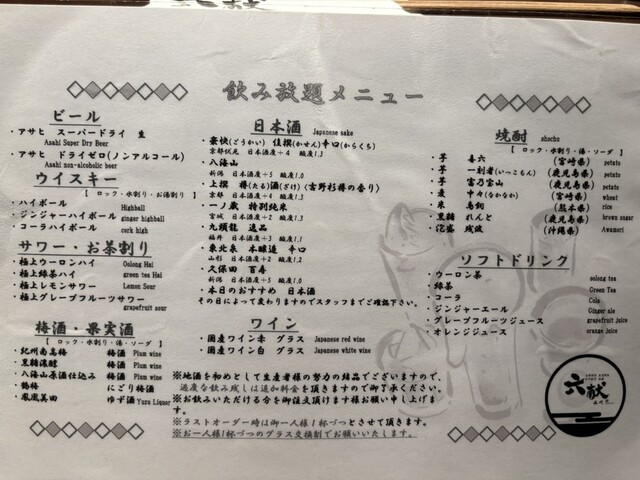 飲み放題メニュー
ビール
・アサヒ スーパードライ 生
Asahi Super Dry Beer
・アサヒ ドライゼロ(ノンアルコール)
Asahi non-alcoholic beer
ウイスキー
【 ロック・水割り・お湯割り 】
・ハイボール Highball
・ジンジャーハイボール ginger highball
・コーラハイボール cork high
サワー・お茶割り
・極上ウーロンハイ Oolong Hai
・極上緑茶ハイ green tea Hai
・極上レモンサワー Lemon Sour
・極上グレープフルーツサワー
grapefruit sour
梅酒・果実酒
【 ロック・水割り・湯・ソーダ 】
・紀州南高梅 梅酒 Plum wine
・黒糖梅酒 梅酒 Plum wine
・八海山原酒仕込み 梅酒 Plum wine
・鶴梅 にごり梅酒
・鳳凰美田 ゆず酒 Yuzu Liquor
日本酒 Japanese sake
・豪快(ごうかい) 佳撰(かせん)辛口(からくち)
京都伏見 日本酒度+4 酸度1.3
・八海山
新潟 日本酒度+5 酸度1.0
・上撰 樽(たる)酒(ざけ)(吉野杉樽の香り)
京都 日本酒度+4 酸度1.3
・一ノ蔵 特別純米
宮城 日本酒度+2 酸度1.3
・九頭龍 逸品
福井 日本酒度+3 酸度1.1
・東北泉 本醸造 辛口
山形 日本酒度+2 酸度1.1
・久保田 百寿
新潟 日本酒度+5 酸度1.0
・本日のおすすめ 日本酒
その日によって変わりますのでスタッフまでご確認下さい。
ワイン
・国産ワイン赤 グラス Japanese red wine
・国産ワイン白 グラス Japanese white wine
※地酒を初めとして生産者様の努力の結晶でございますので、
過度な飲み残しは追加料金を頂きますのでご了承ください。
※お飲みいただける分を御注文頂けます様お願い申し上げま
す。
※ラストオーダー時は御一人様1杯づつとさせて頂きます。
※お一人様1杯づつのグラス交換制でお願いいたします。
焼酎 shochu
【 ロック・水割り・湯・ソーダ 】
・芋 喜六 (宮崎県) potato
・芋 一刻者(いっこもん) (鹿児島県) potato
・芋 富乃宝山 (鹿児島県) potato
・麦 中々(なかなか) (宮崎県) wheat
・米 鳥飼 (熊本県) rice
・黒糖 れんと (鹿児島県) brown sugar
・泡盛 残波 (沖縄県) Awamori
ソフトドリンク
・ウーロン茶 oolong tea
・緑茶 Green Tea
・コーラ Cola
・ジンジャーエール Ginger ale
・グレープフルーツジュース grapefruit juice
・オレンジジュース orange juice
六献